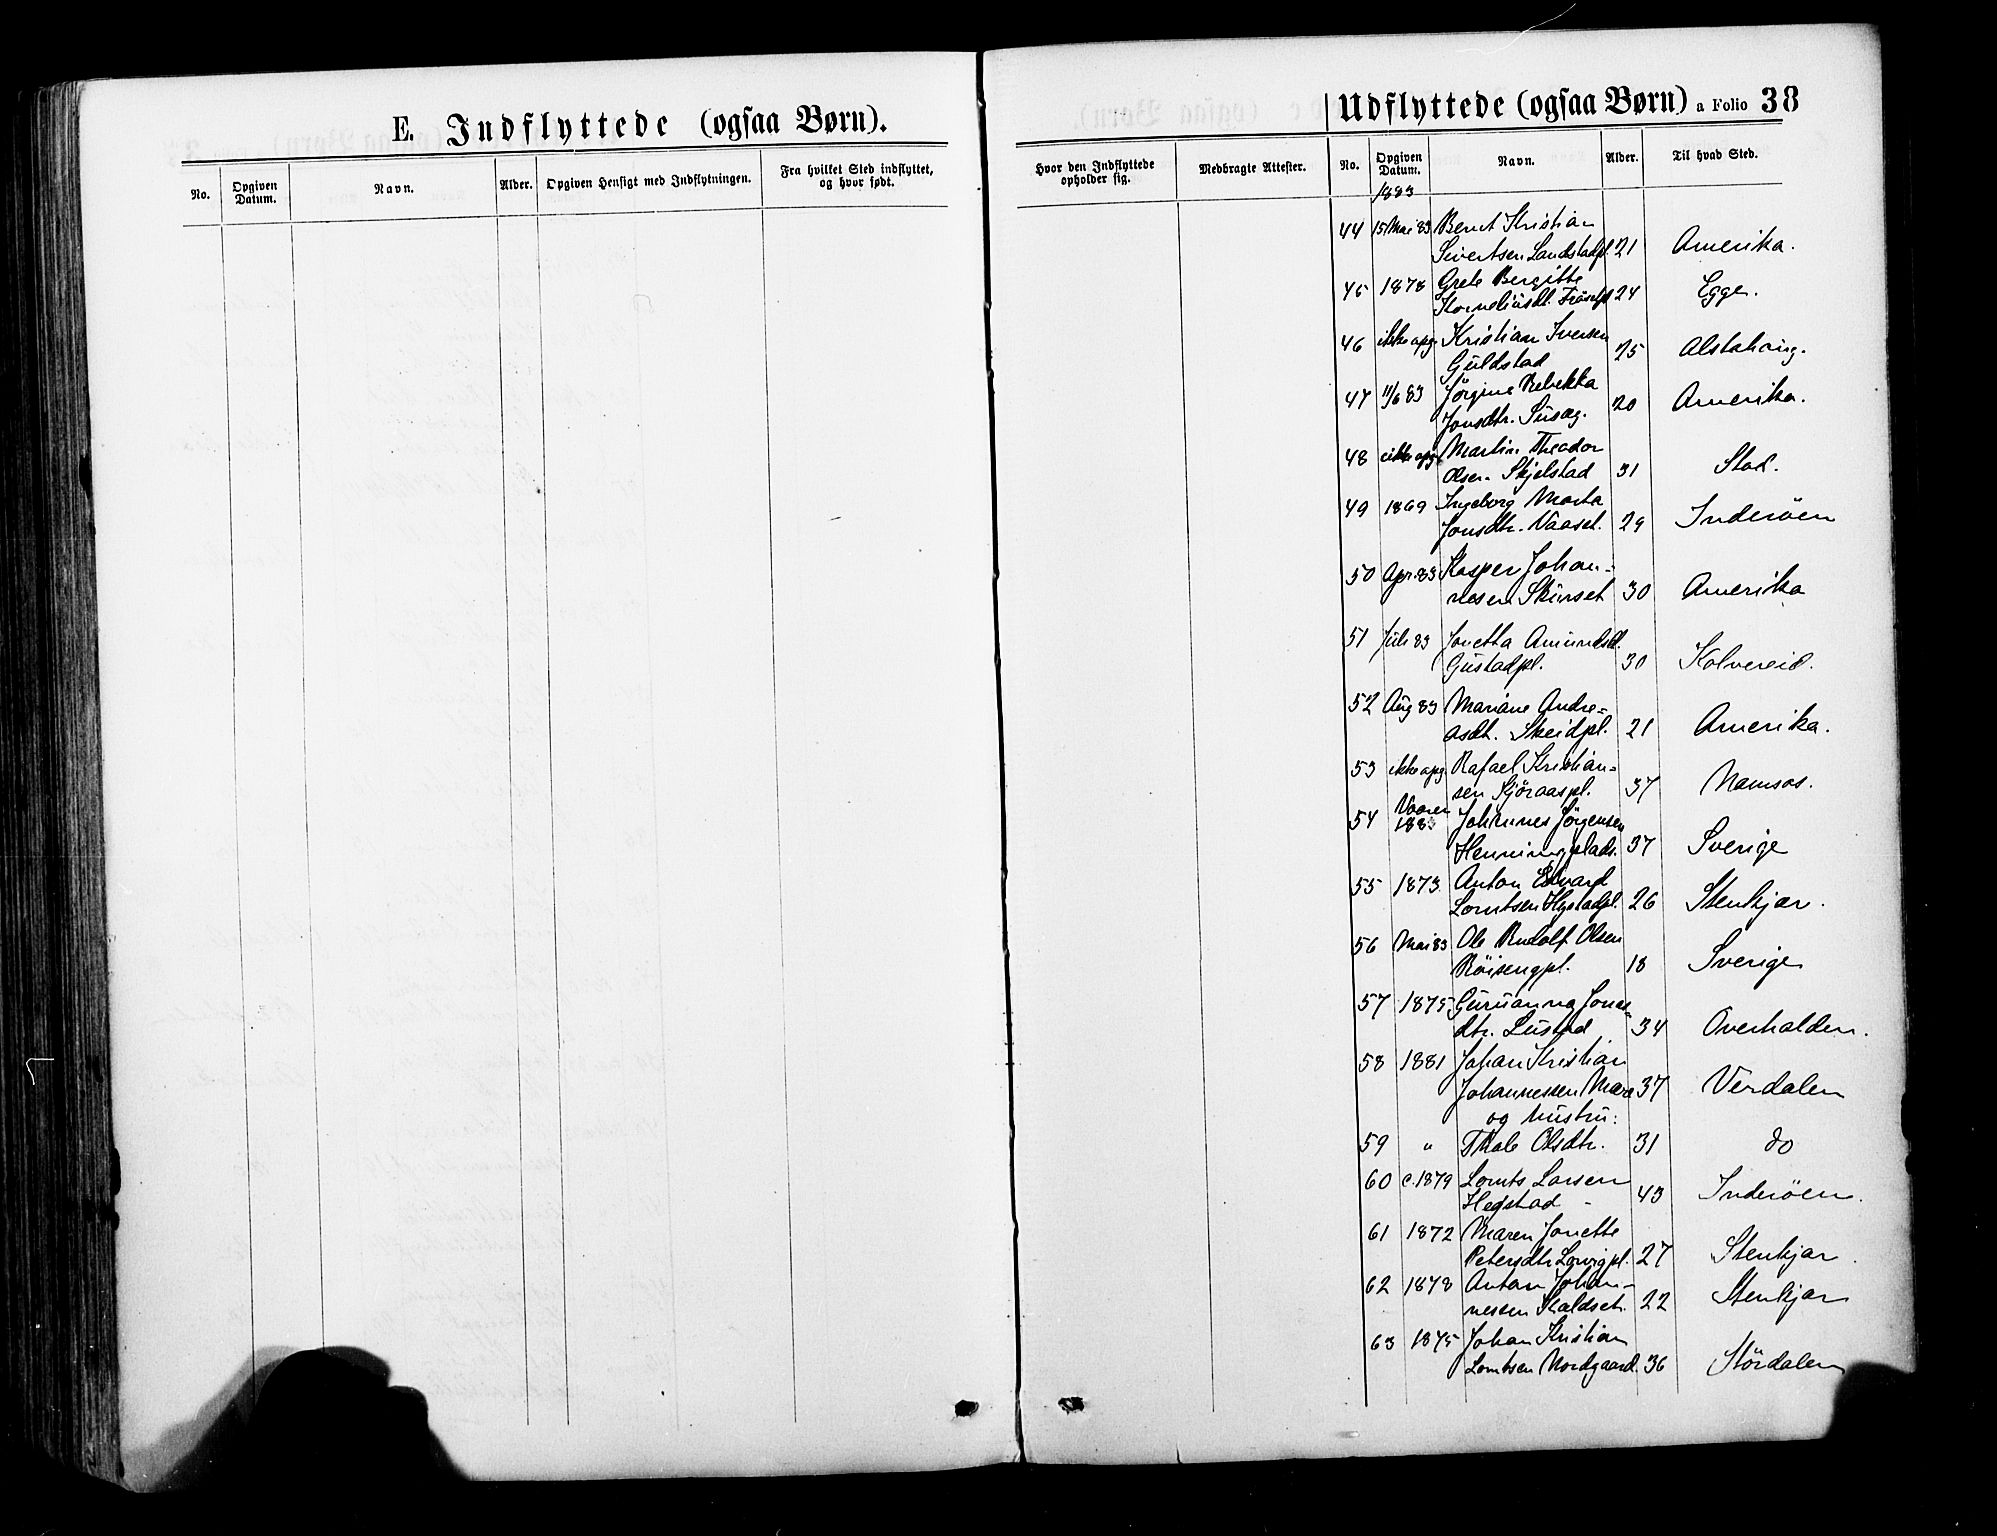 E. Indflyttede (ogsaa Børn).
No.
Opgiven Datum.
Navn.
Alder.
Opgiven Hensigt med Indflytningen.
Fra hvilket Sted indflyttet, og hvor født.
Udflyttede (ogsaa Børn) a Folio 38
Hvor den Indflyttede opholder sig.
Medbragte Attester.
No.
Opgiven Datum.
Navn.
Alder.
Til hvad Sted.
1883
44 15 Mai 83 Bernt Kristian
Sivertsen Landstadpl. 21 Amerika.
45 1878 Grete Bergitte
Korneliusdt. 24 Egge.
46 ikke opg. Kristian Iversen
Guldstad 25 Alstahoug.
47 11/6 83 Jørgine Rebekka
Jonsdtr. Susæg. 20 Amerika.
48 ikke opg. Martin Theodor
Olsen Skjelstad 31 Stod.
49 1869 Ingeborg Marta
Jonsdtr. Vaaset. 29 Inderöen
50 Apr. 83 Kasper Johan-
nesen Skinset 30 Amerika
51 Juli 83 Jonetta Amundsd.
Gustadpl. 30 Kolvereid.
52 Aug 83 Mariane Andre=
asdt. Skeidpl. 21 Amerika.
53 ikke opg. Rafael Kristian=
sen Sjöraaspl. 37 Namsos.
54 Vaaren 1883 Johannes Jörgensen
Henningplads. 37 Sverige
55 1873 Anton Edvard
Lorntsen Hystadpl. 26 Stenkjær.
56 Mai 83 Ole Rudolf Olsen
Röisengpl. 18 Sverige
57 1875 Guruanna Jonas-
dtr. Lustad 34 Overhalden.
58 1881 Johan Kristian
Johannessen Mære 37 Verdalen
og hustru:
59 " Thale Olsdtr. 31 do
60 c. 1879 Lornts Larsen
Hegstad - 43 Inderöen.
61 1872 Maren Jonette
Petersdtr. 27 Stenkjær.
62 1878 Anton Johan-
nessen Kaldset. 22 Stenkjær
63 1875 Johan Kristian
Lorntsen Nordgaard 36 Stördalen